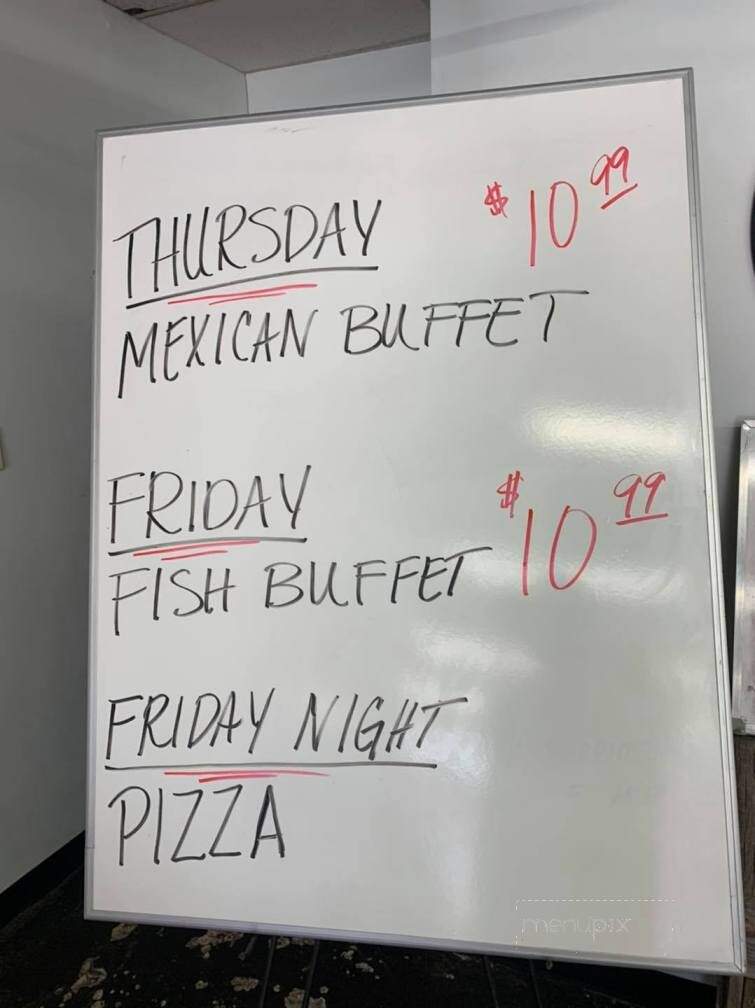 THURSDAY $10 99
MEXICAN BUFFET
FRIDAY $10 99
FISH BUFFET
FRIDAY NIGHT
PIZZA
menupix